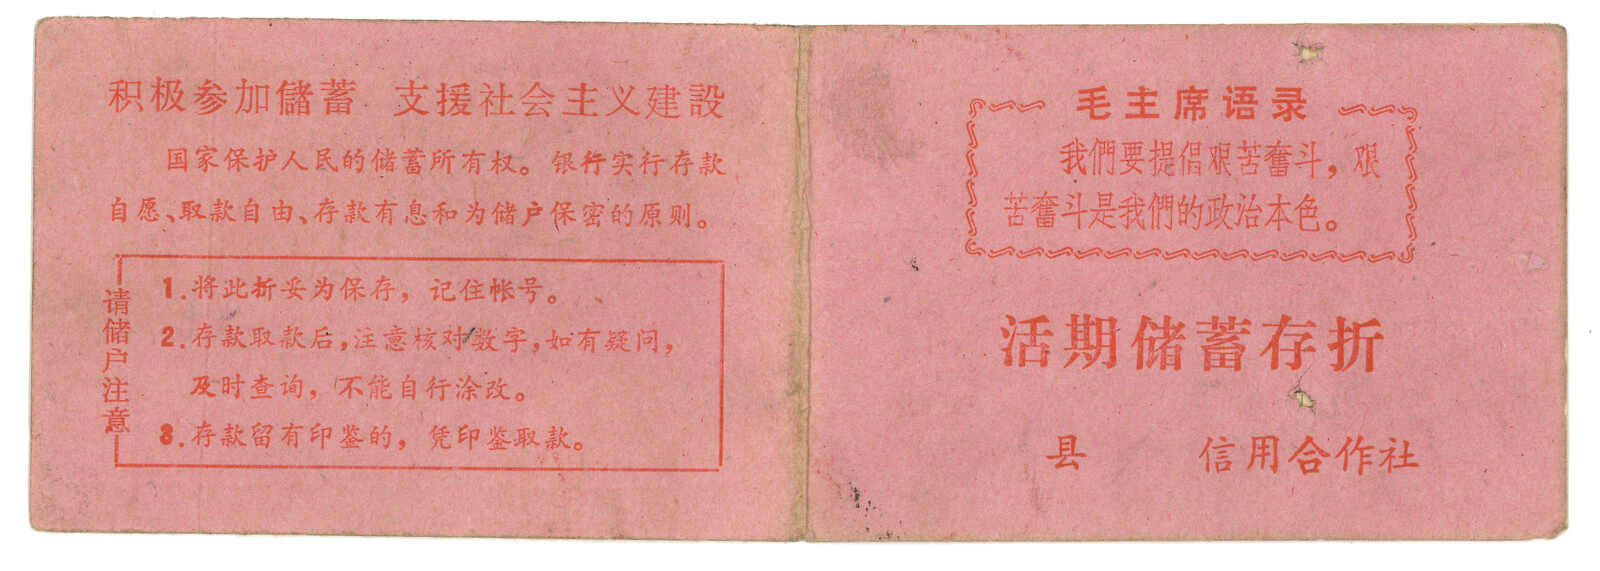 积极参加儲蓄 支援社会主义建設
国家保护人民的储蓄所有权。银行实行存款
自愿、取款自由、存款有息和为储户保密的原则。
请储户注意
1.将此折妥为保存，记住帐号。
2.存款取款后,注意核对数字,如有疑问,
及时查询，不能自行涂改。
3.存款留有印鉴的，凭印鉴取款。
毛主席语录
我們要提倡艰苦奮斗，艰
苦奮斗是我們的政治本色。
活期储蓄存折
县 信用合作社